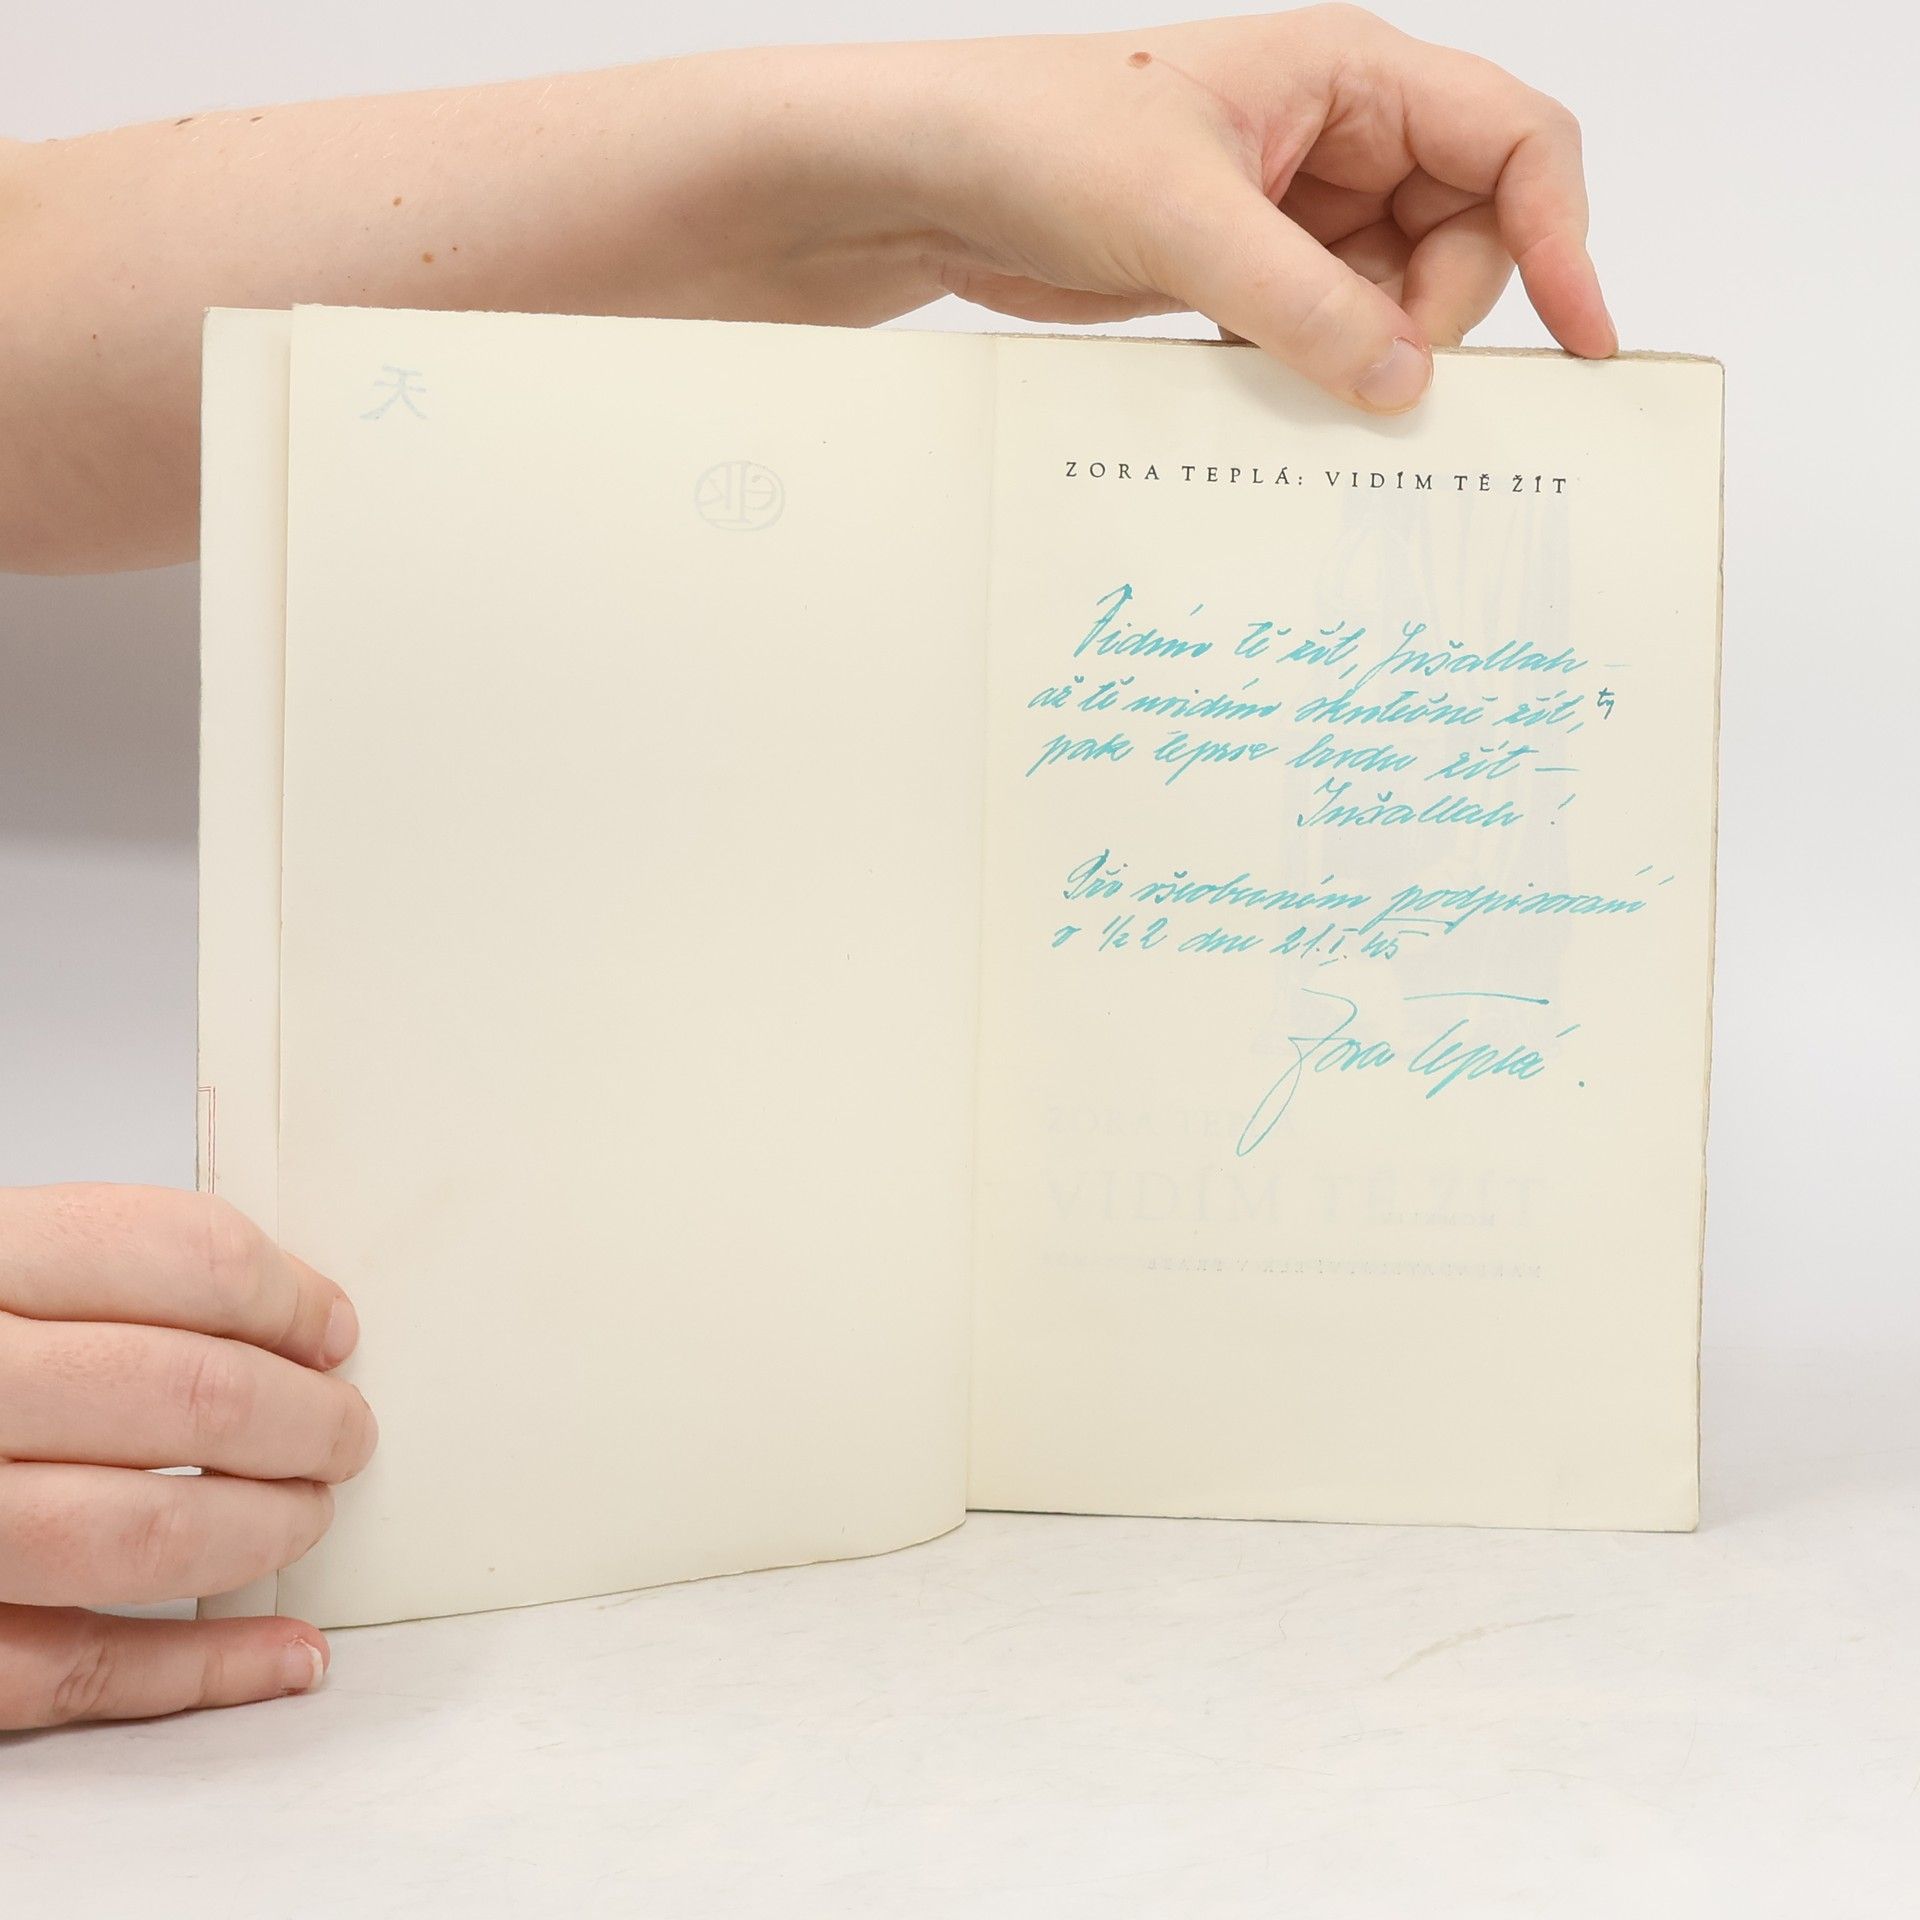 ZORA TEPLÁ: VIDÍM TĚ ŽÍT
Vidím tě žít, Inšallah —
až tě uvidím skutečně žít, ty
pak lépe budu žít —
Inšallah!
Při všeobecném podpisování
v ½2 dne 21.I.45
Zora Teplá.
ZORA TEPLÁ
VIDÍM TĚ ŽÍT